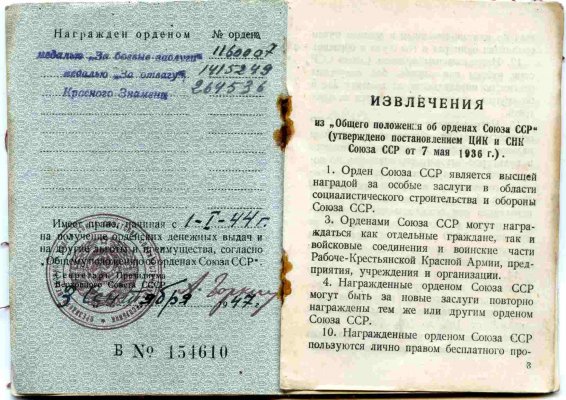 Награжден орденом № ордена
медалью „За боевые заслуги“ 1160007
медалью „За отвагу“ 1415249
Красного Знамени 264536
Имеет право, начиная с 1-I-44 г.
на получение орденских денежных выдач и
на другие льготы и преимущества, согласно
„Общему положению об орденах Союза ССР“.
Секретарь Президиума
Верховного Совета СССР
А. Горкин
3 47 г.
В № 154610
ИЗВЛЕЧЕНИЯ
из „Общего положения об орденах Союза ССР“
(утверждено постановлением ЦИК и СНК
Союза ССР от 7 мая 1936 г.).
1. Орден Союза ССР является высшей
наградой за особые заслуги в области
социалистического строительства и обороны
Союза ССР.
3. Орденами Союза ССР могут награ-
ждаться как отдельные граждане, так и
войсковые соединения и воинские части
Рабоче-Крестьянской Красной Армии, пред-
приятия, учреждения и организации.
4. Награжденные орденом Союза ССР
могут быть за новые заслуги повторно
награждены тем же или другим орденом
Союза ССР.
10. Награжденные орденом Союза ССР
пользуются лично правом бесплатного про-
3